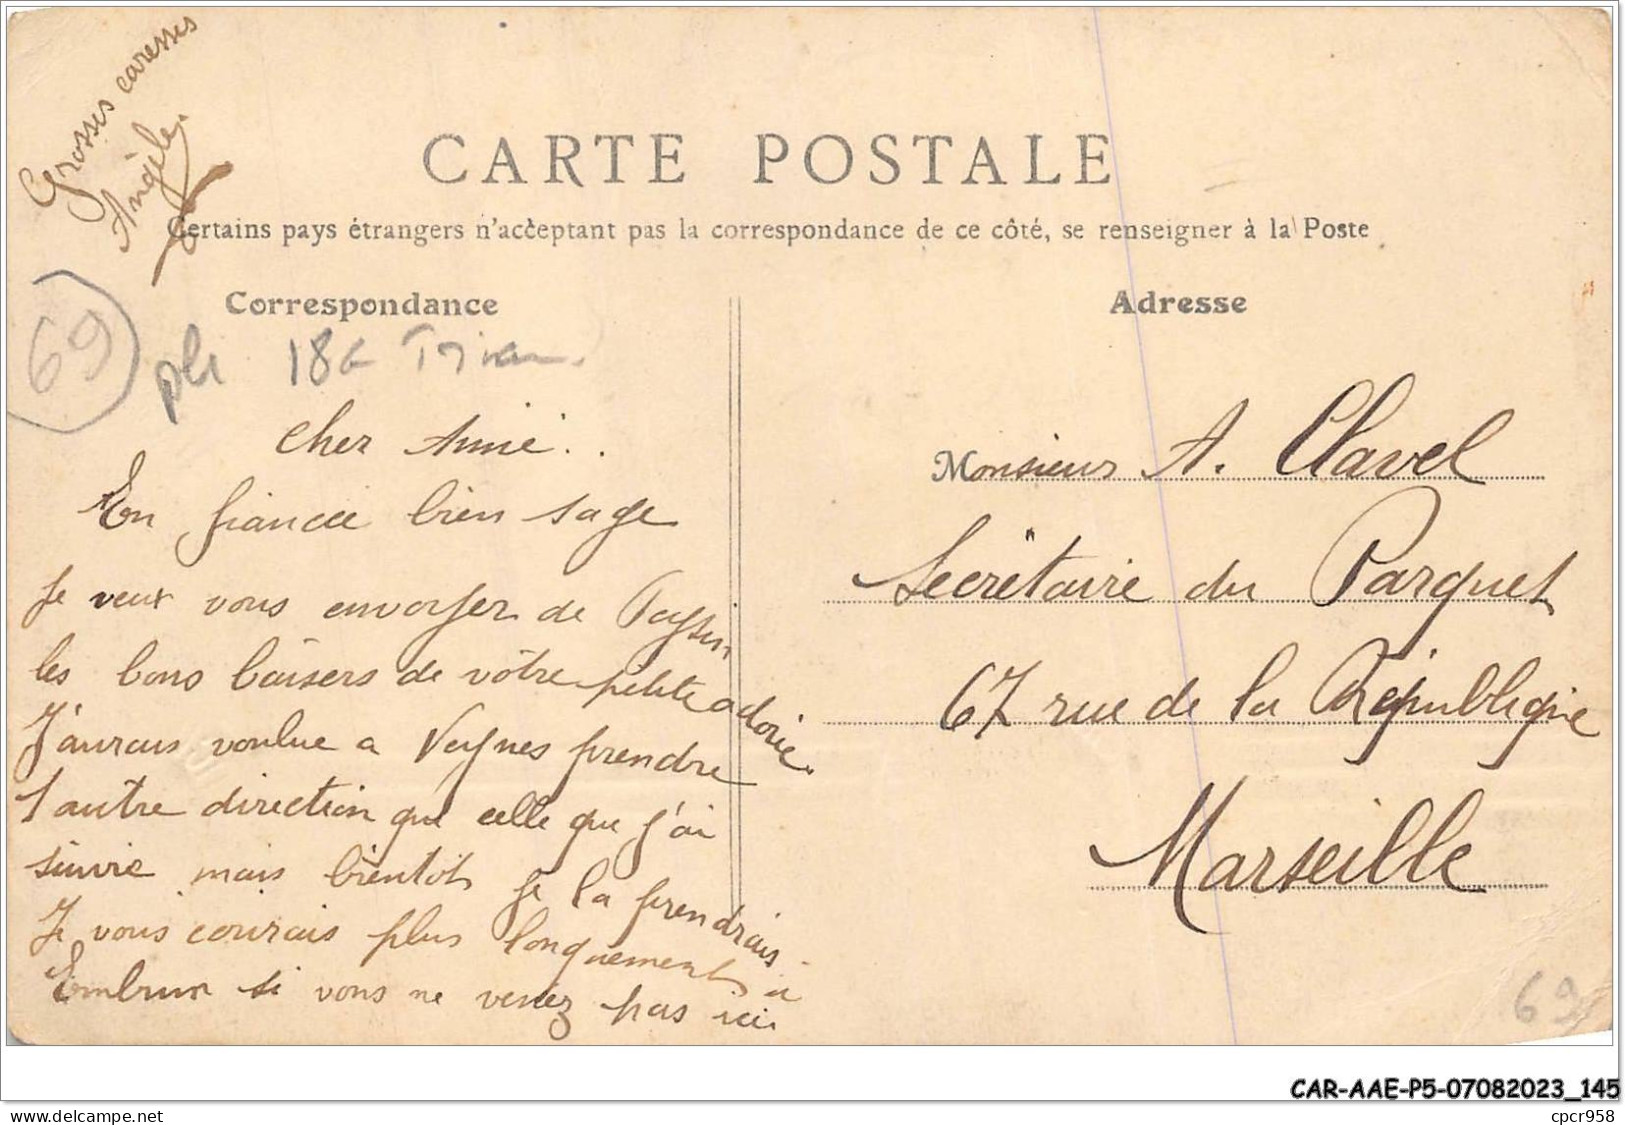 Grosses caresses
Angèle.
CARTE POSTALE
Certains pays étrangers n'acceptant pas la correspondance de ce côté, se renseigner à la Poste
Correspondance
Adresse
69
cher Aimé..
En fiancée bien sage
Je veux vous envoyer de
les bons baisers de vôtre petite adorie.
J'aurais voulue a Veynes prendre
l'autre direction que celle que j'ai
suivie mais bientôt je la prendrais
Je vous courais plus longuement à
Embrun si vous ne venez pas ici
Monsieur A. Clavel
Secrétaire du Parquet
67 rue de la République
Marseille
69
CAR-AAE-P5-07082023_145
www.delcampe.net
cpcr958